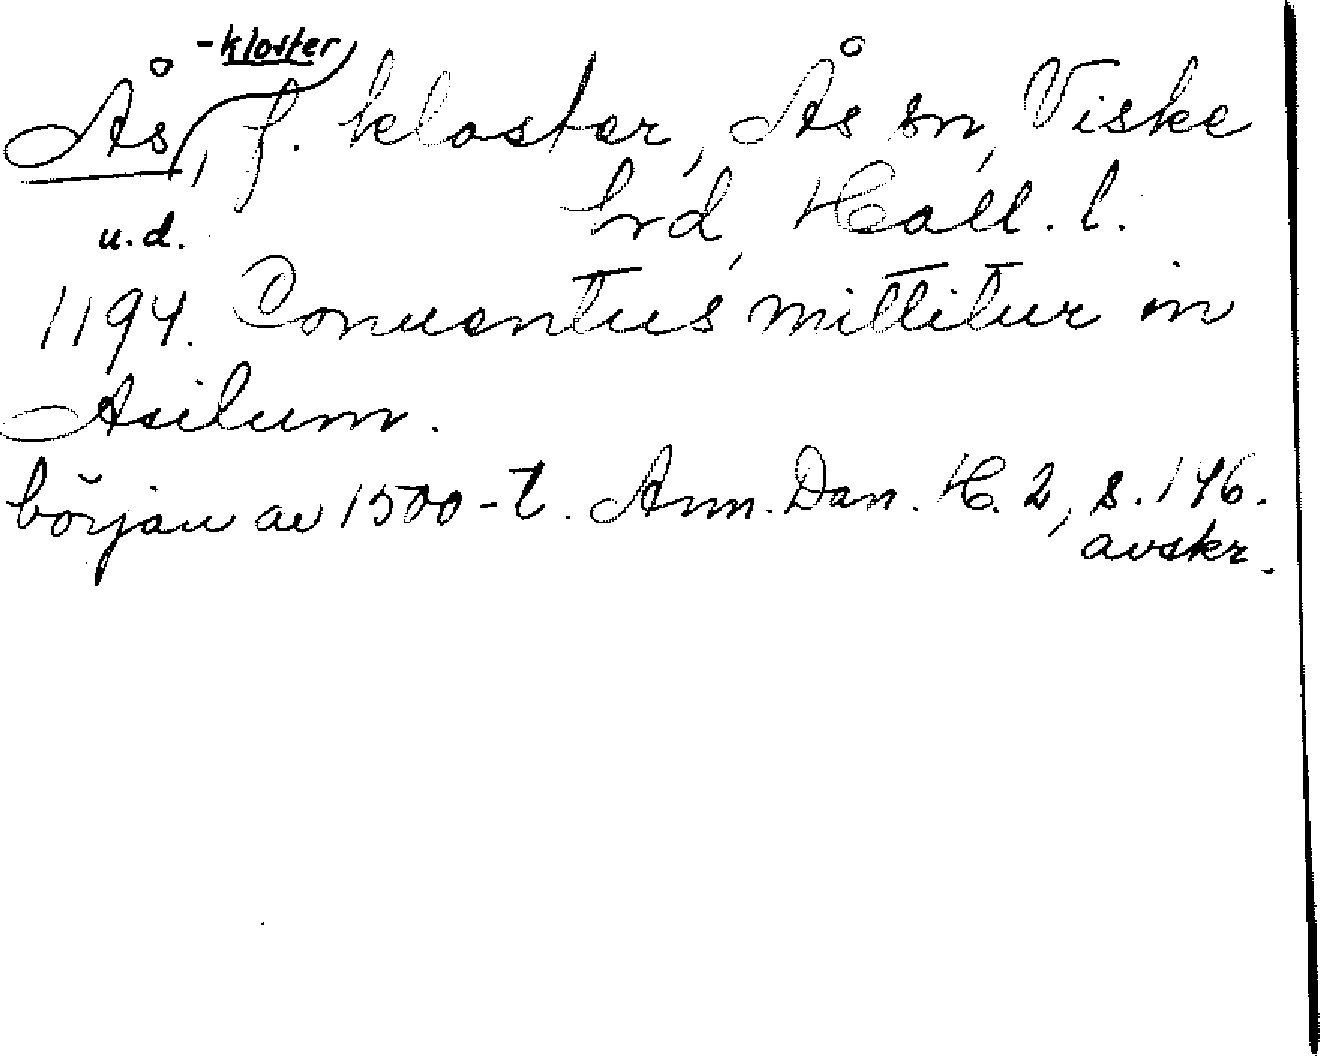 -kloster
Ås, f. kloster, Ås sn, Viske
hrd, Hall. l.
u.d.
1194. Conuentus mittitur in
Asilum.
början av 1500-t. Ann. Dan. H. 2, s. 146.
avskr.